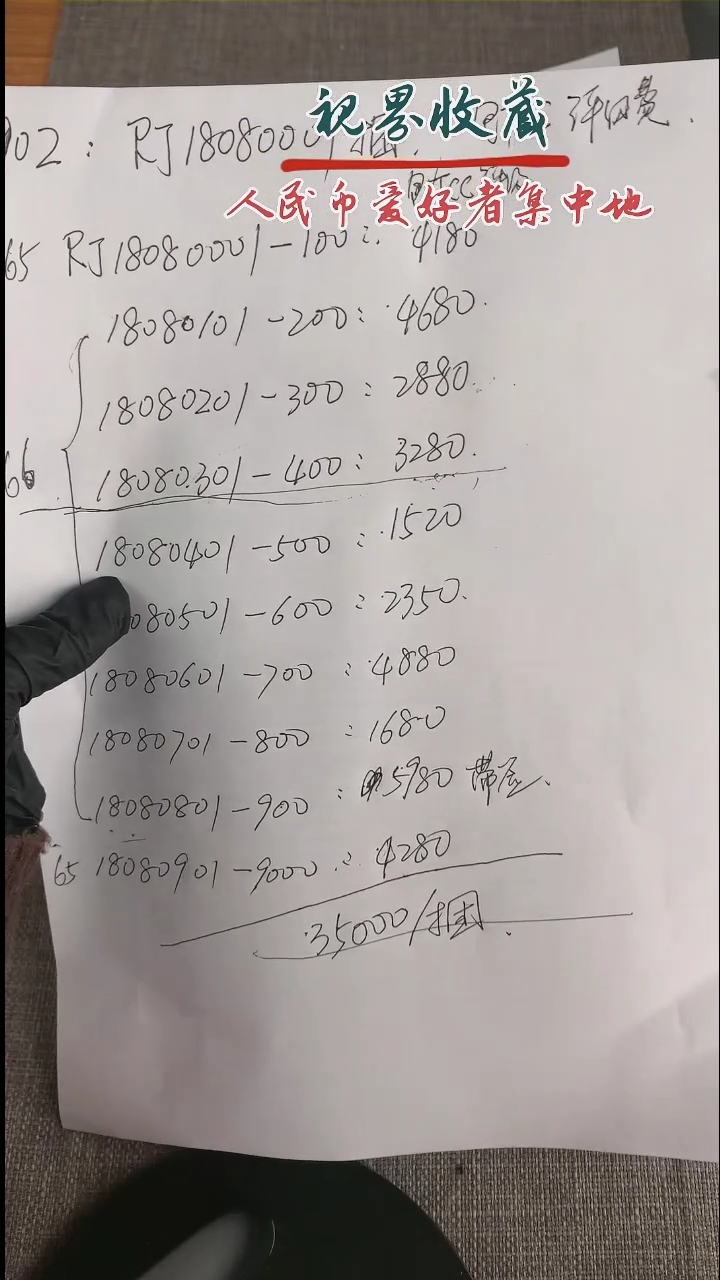 视界收藏
人民币爱好者集中地
902: RJ18080001捆, 评级费.
65 RJ18080001-100: 4180
18080101-200: 4680.
18080201-300: 2880.
66 18080301-400: 3280.
18080401-500: 1520
8080501-600: 2350.
18080601-700: 4880
18080701-800: 1680
18080801-900: 5980 带
65 18080901-9000: 4280
35000/捆.